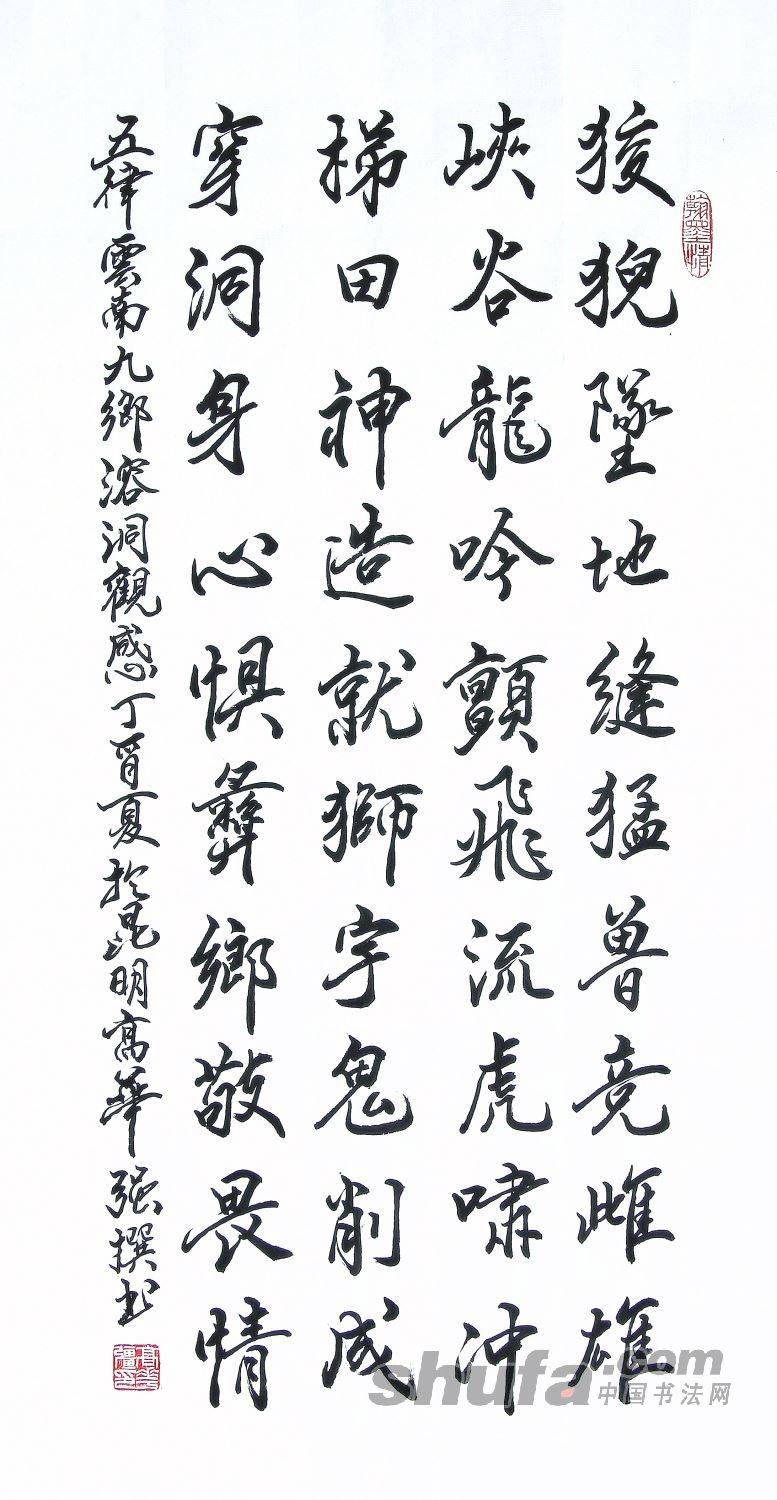 翰墨情
狻猊墜地縫猛兽竞雌雄
峽谷龍吟顫飛流虎啸冲
梯田神造就獅字鬼削成
穿洞身心惧彝鄉敬畏情
五律雲南九鄉溶洞觀感丁酉夏於昆明高華强撰书
shufa.com
中国书法网